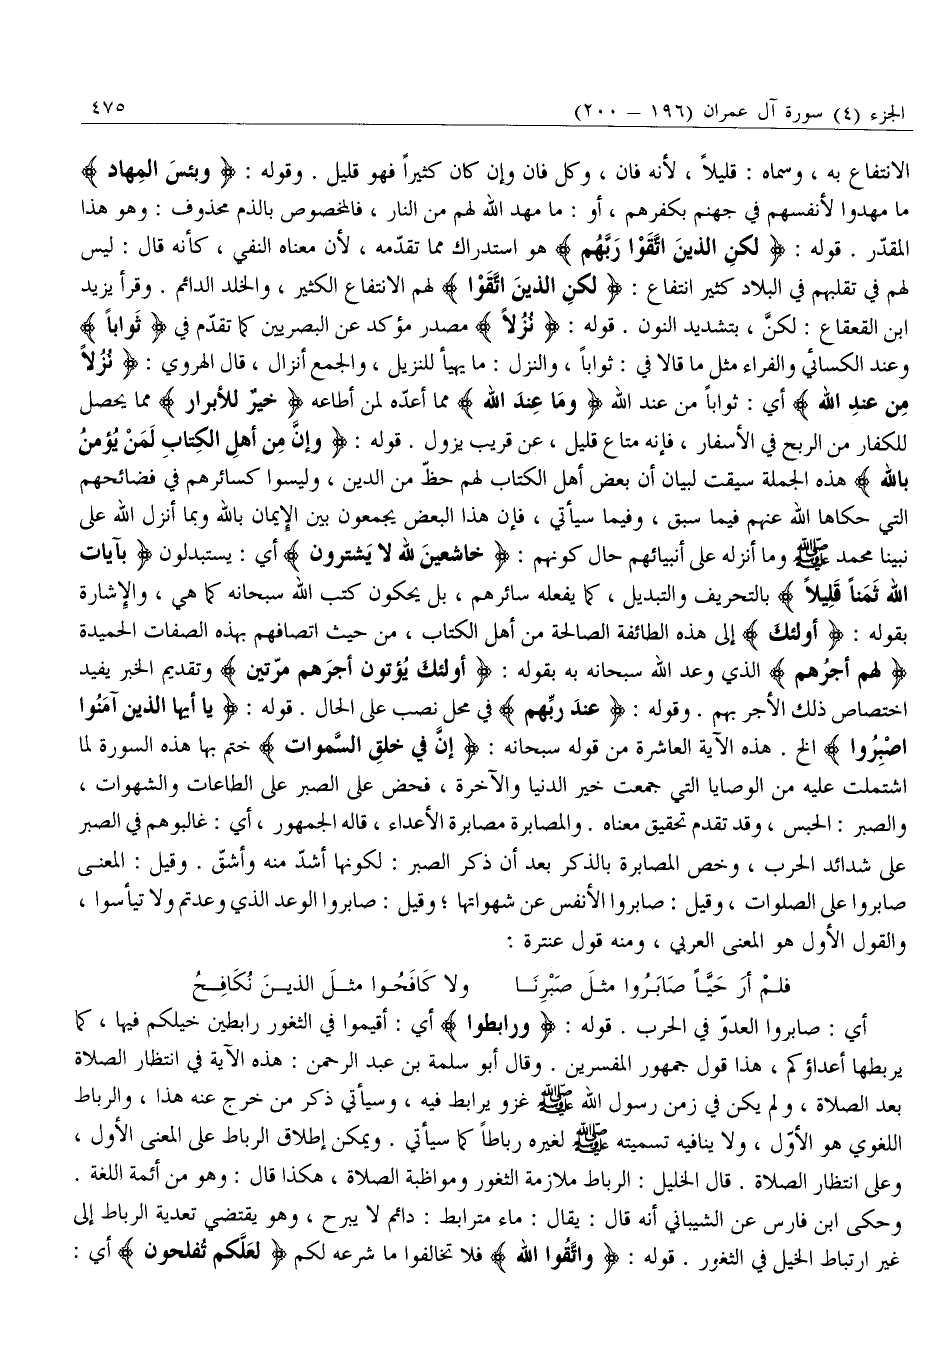 الجزء (٤) سورة آل عمران (١٩٦ – ٢٠٠) ٤٧٥
الانتفاع به ، وسماه : قليلاً ، لأنه فان ، وكل فان وإن كان كثيراً فهو قليل . وقوله : ﴿ وبئسَ المِهاد ﴾
ما مهدوا لأنفسهم في جهنم بكفرهم ، أو : ما مهد الله لهم من النار ، فالمخصوص بالذم محذوف : وهو هذا
المقدّر . قوله : ﴿ لكنِ الذينَ اتَّقَوْا رَبَّهُم ﴾ هو استدراك مما تقدّمه ، لأن معناه النفي ، كأنه قال : ليس
لهم في تقلبهم في البلاد كثير انتفاع : ﴿ لكنِ الذينَ اتَّقَوْا ﴾ لهم الانتفاع الكثير ، والخلد الدائم . وقرأ يزيد
ابن القعقاع : لكنَّ ، بتشديد النون . قوله : ﴿ نُزُلاً ﴾ مصدر مؤكد عن البصريين كما تقدّم في ﴿ ثَواباً ﴾
وعند الكسائي والفراء مثل ما قالا في : ثواباً ، والنزل : ما يهيأ للنزيل ، والجمع أنزال ، قال الهروي : ﴿ نُزُلاً
مِن عندِ الله ﴾ أي : ثواباً من عند الله ﴿ ومَا عِندَ الله ﴾ مما أعدّه لمن أطاعه ﴿ خيرٌ للأبرار ﴾ مما يحصل
للكفار من الربح في الأسفار ، فإنه متاع قليل ، عن قريب يزول . قوله : ﴿ وإنَّ مِن أهلِ الكِتابِ لَمَنْ يُؤمنُ
بالله ﴾ هذه الجملة سيقت لبيان أن بعض أهل الكتاب لهم حظّ من الدين ، وليسوا كسائرهم في فضائحهم
التي حكاها الله عنهم فيما سبق ، وفيما سيأتي ، فإن هذا البعض يجمعون بين الإيمان بالله وبما أنزل الله على
نبينا محمد ﷺ وما أنزله على أنبيائهم حال كونهم : ﴿ خاشعينَ لله لا يَشترون ﴾ أي : يستبدلون ﴿ بآيات
الله ثَمَناً قَلِيلاً ﴾ بالتحريف والتبديل ، كما يفعله سائرهم ، بل يحكون كتب الله سبحانه كما هي ، والإشارة
بقوله : ﴿ أولئكَ ﴾ إلى هذه الطائفة الصالحة من أهل الكتاب ، من حيث اتصافهم بهذه الصفات الحميدة
﴿ لهم أجرُهم ﴾ الذي وعد الله سبحانه به بقوله : ﴿ أولئكَ يُؤتون أجرَهم مرّتين ﴾ وتقديم الخبر يفيد
اختصاص ذلك الأجر بهم . وقوله : ﴿ عندَ ربِّهم ﴾ في محل نصب على الحال . قوله : ﴿ يا أيها الذين آمَنُوا
اصْبِرُوا ﴾ الخ . هذه الآية العاشرة من قوله سبحانه : ﴿ إنَّ في خلقِ السَّموات ﴾ ختم بها هذه السورة لما
اشتملت عليه من الوصايا التي جمعت خير الدنيا والآخرة ، فحض على الصبر على الطاعات والشهوات ،
والصبر : الحبس ، وقد تقدم تحقيق معناه . والمصابرة مصابرة الأعداء ، قاله الجمهور ، أي : غالبوهم في الصبر
على شدائد الحرب ، وخص المصابرة بالذكر بعد أن ذكر الصبر : لكونها أشدّ منه وأشقّ . وقيل : المعنى
صابروا على الصلوات ، وقيل : صابروا الأنفس عن شهواتها ؛ وقيل : صابروا الوعد الذي وعدتم ولا تيأسوا ،
والقول الأول هو المعنى العربي ، ومنه قول عنترة :
فلمْ أرَ حَيَّاً صَابَرُوا مثلَ صَبْرِنَا ولا كَافَحُوا مثلَ الذينَ نُكَافِحُ
أي : صابروا العدوّ في الحرب . قوله : ﴿ ورابطوا ﴾ أي : أقيموا في الثغور رابطين خيلكم فيها ، كما
يربطها أعداؤكم ، هذا قول جمهور المفسرين . وقال أبو سلمة بن عبد الرحمن : هذه الآية في انتظار الصلاة
بعد الصلاة ، ولم يكن في زمن رسول الله ﷺ غزو يرابط فيه ، وسيأتي ذكر من خرج عنه هذا ، والرباط
اللغوي هو الأوّل ، ولا ينافيه تسميته ﷺ لغيره رباطاً كما سيأتي . ويمكن إطلاق الرباط على المعنى الأول ،
وعلى انتظار الصلاة . قال الخليل : الرباط ملازمة الثغور ومواظبة الصلاة ، هكذا قال : وهو من أئمة اللغة .
وحكى ابن فارس عن الشيباني أنه قال : يقال : ماء مترابط : دائم لا يبرح ، وهو يقتضي تعدية الرباط إلى
غير ارتباط الخيل في الثغور . قوله : ﴿ واتَّقُوا الله ﴾ فلا تخالفوا ما شرعه لكم ﴿ لعَلَّكم تُفلحون ﴾ أي :